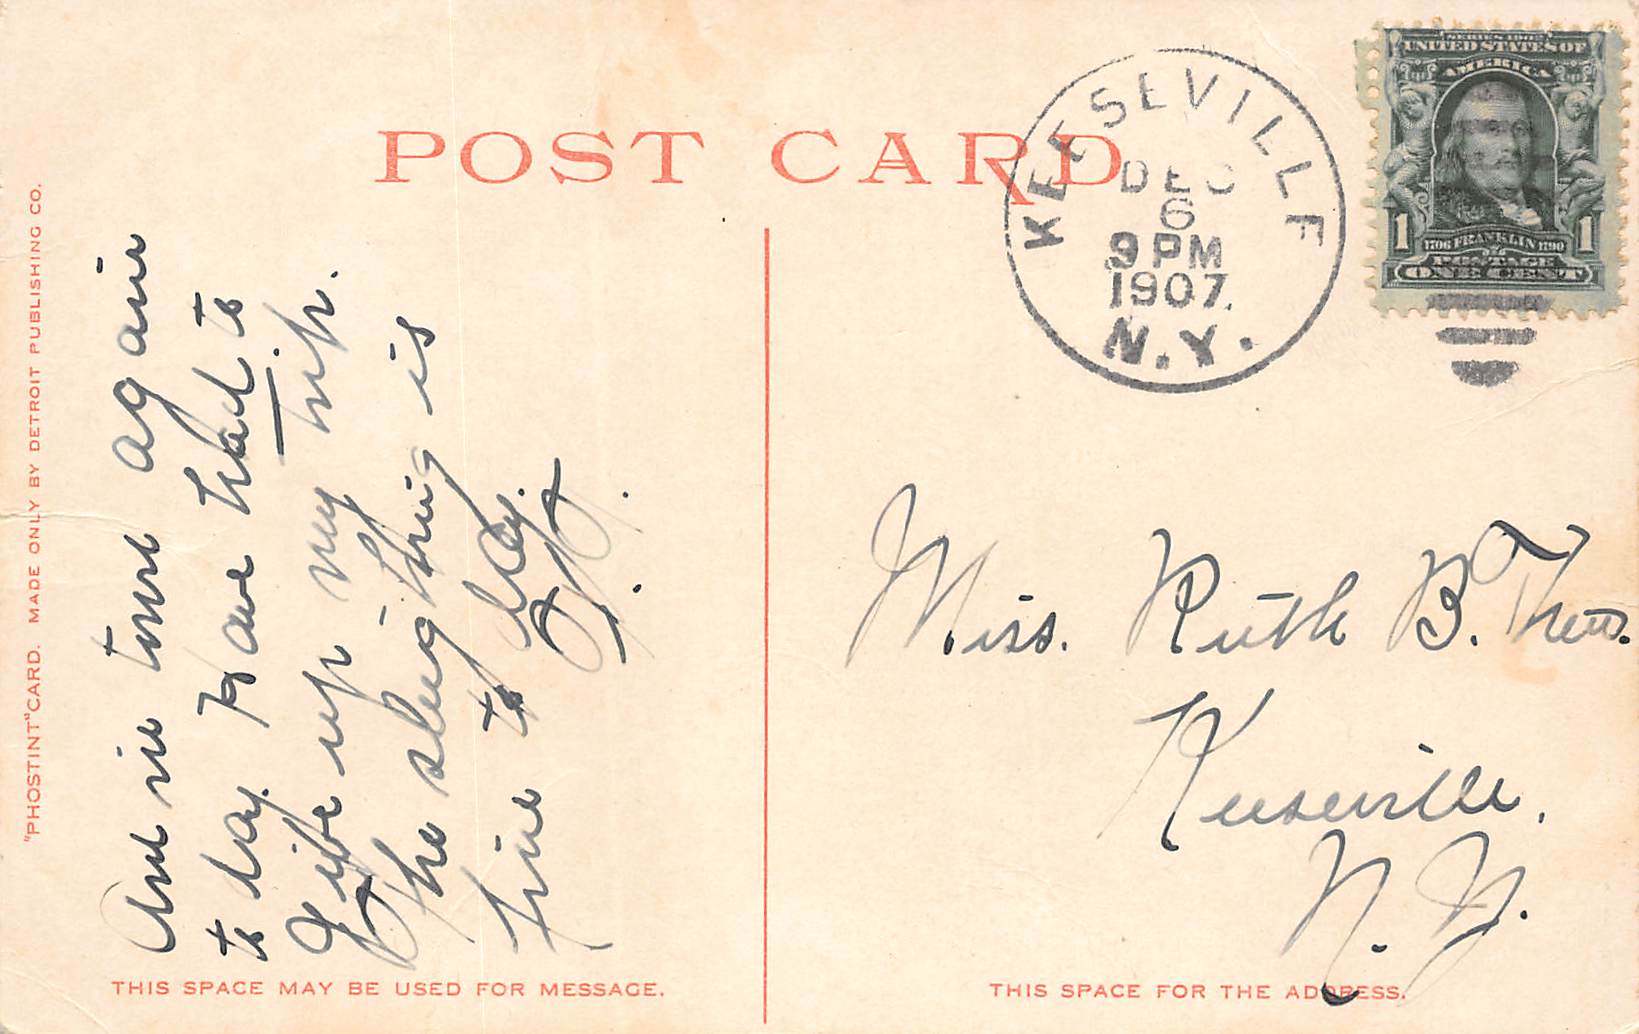 POST CARD
KEESEVILLE
DEC
6
9 PM
1907.
N.Y.
SERIES 1902
UNITED STATES OF
AMERICA
1 1706 FRANKLIN 1790 1
POSTAGE
ONE CENT
"PHOSTINT" CARD. MADE ONLY BY DETROIT PUBLISHING CO.
Am in town again
to day. Have had to
Give up my trip.
The sleighing is
fine to day.
Miss. Ruth B.
Keeseville,
N. Y.
THIS SPACE MAY BE USED FOR MESSAGE.
THIS SPACE FOR THE ADDRESS.